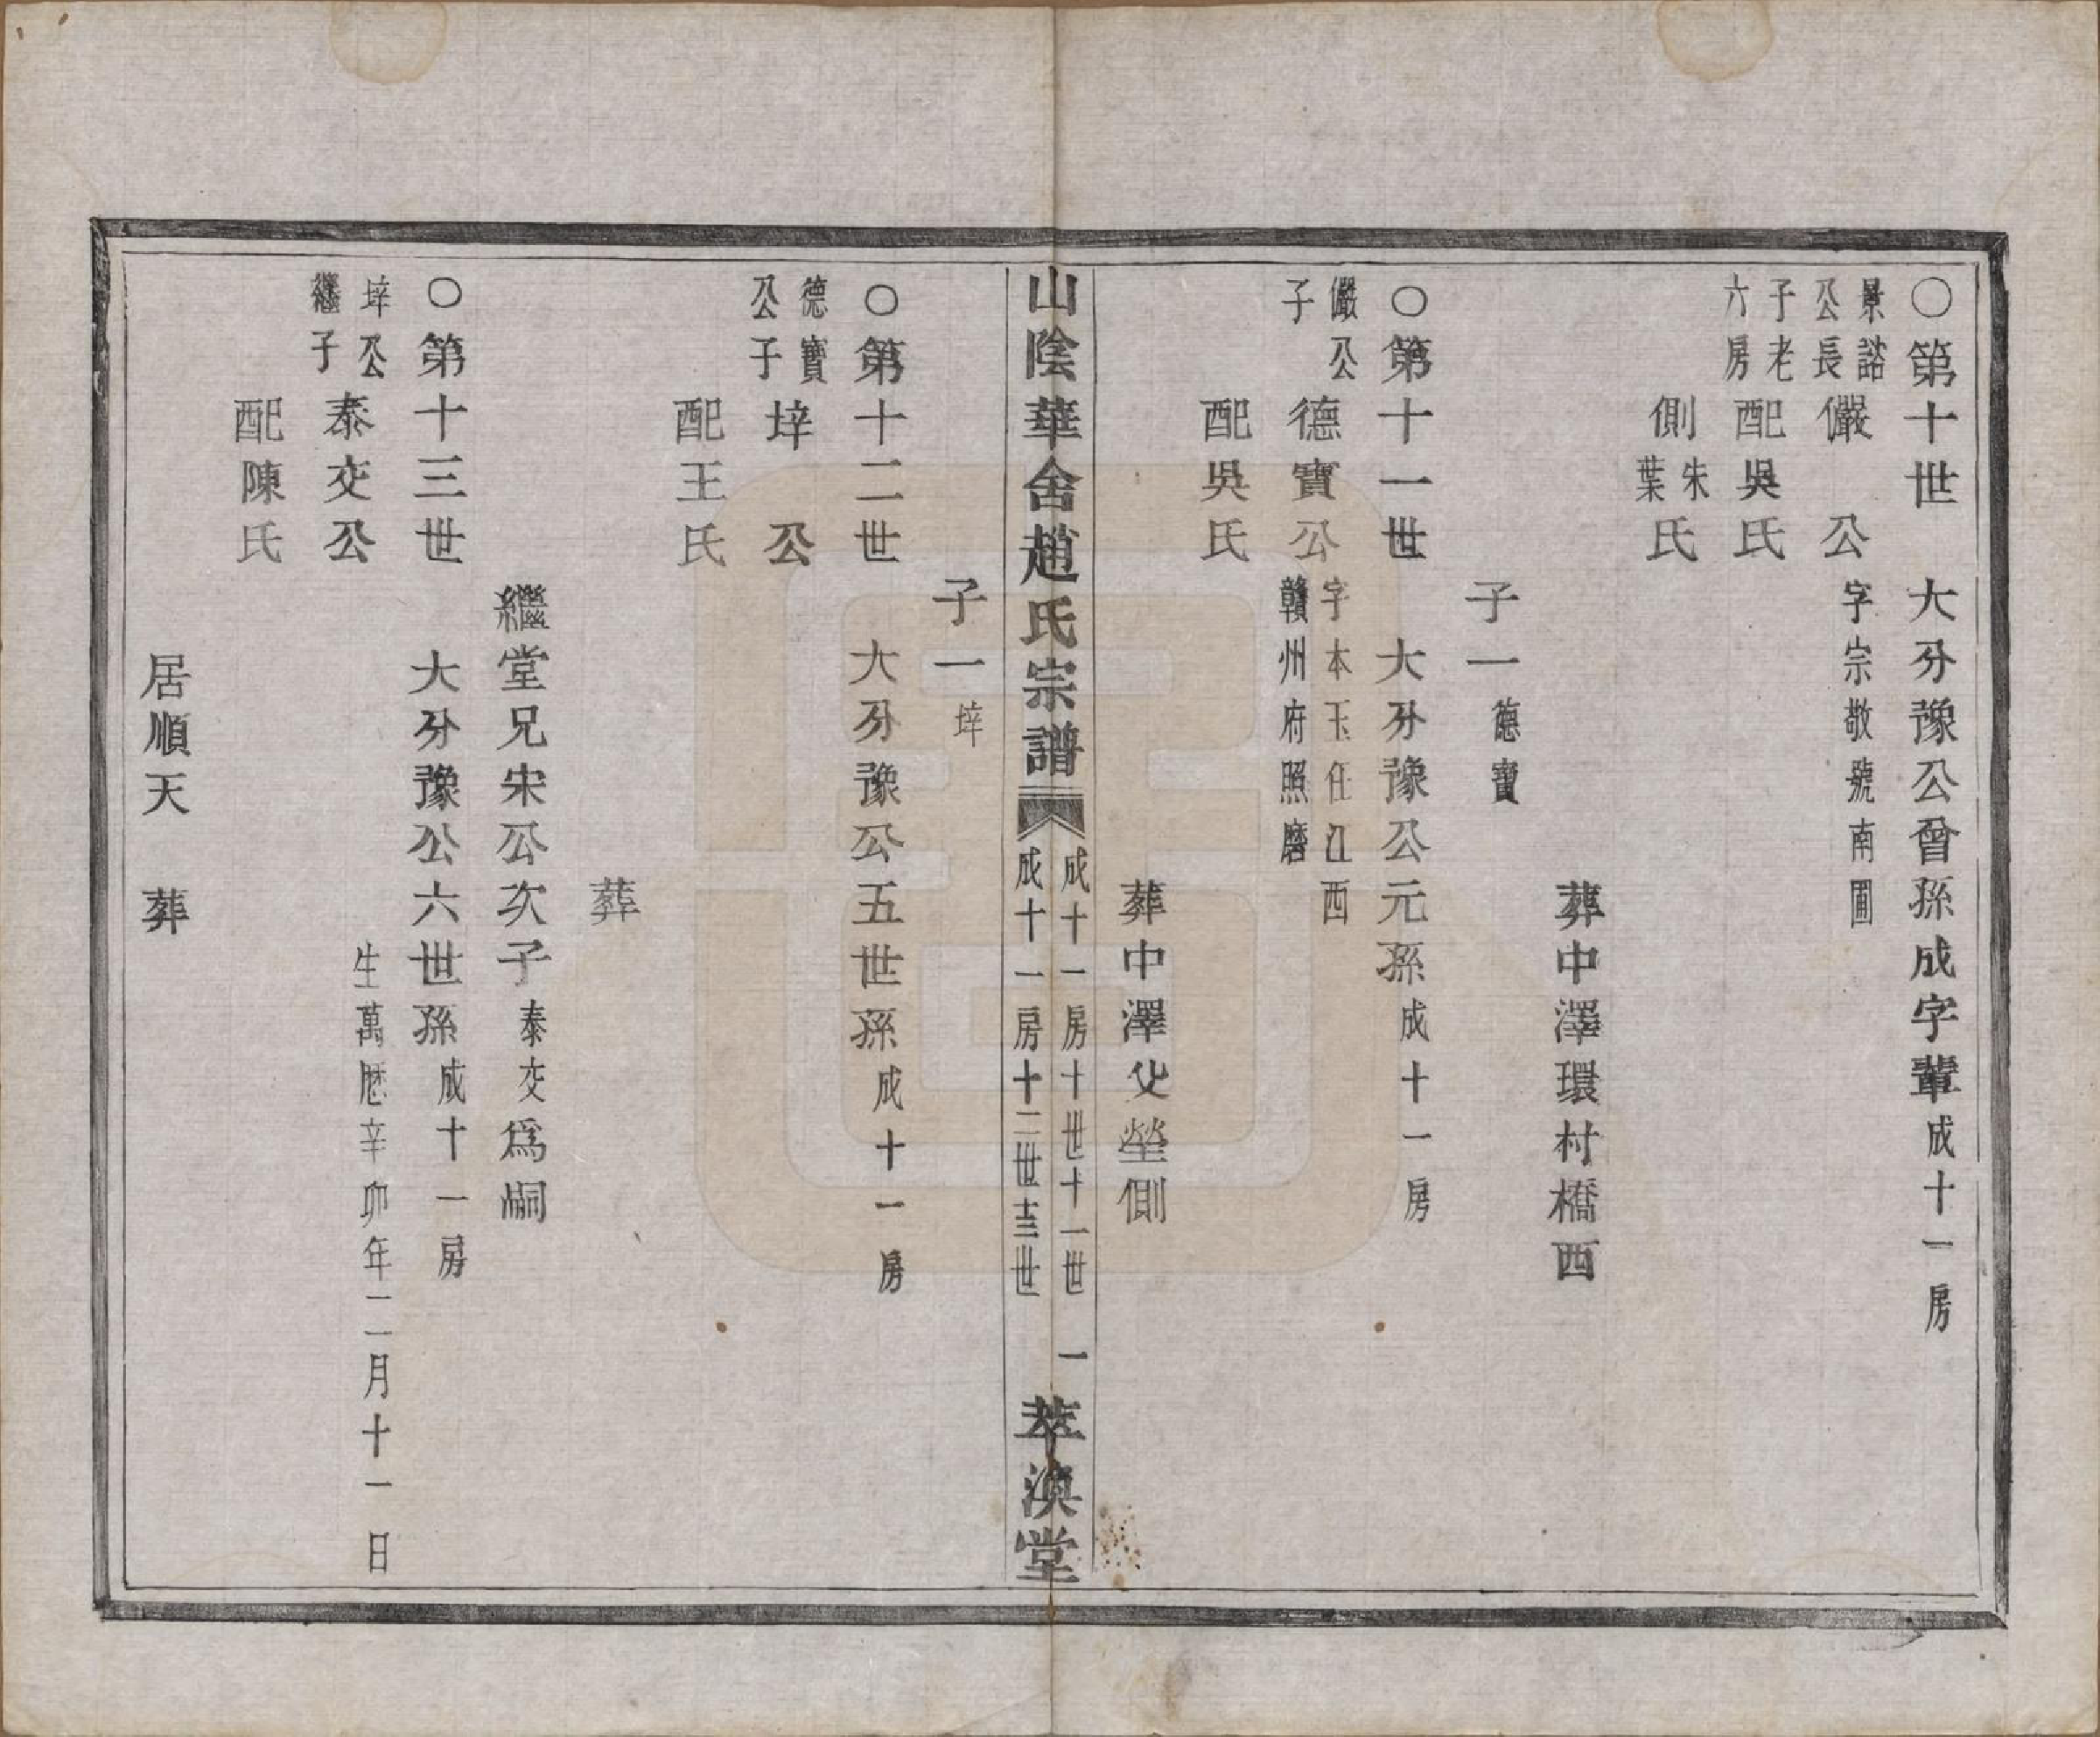 ○第十世　大分豫公曾孫成字輩成十一房
景諮公長子老六房
儼　公　字宗敬號南圃
配吳氏
側朱葉氏
葬中澤環村橋西
子一德寶
○第十一世　大分豫公元孫成十一房
儼公子
德寶公　字本玉任江西贛州府照磨
配吳氏
葬中澤父塋側
山陰華舍趙氏宗譜
成十一房十世十一世
成十一房十二世十三世
一
萃渙堂
子一垶
○第十二世　大分豫公五世孫成十一房
德寶公子
垶　公
配王氏
葬
繼堂兄宋公次子泰交爲嗣
○第十三世　大分豫公六世孫成十一房
垶公繼子
泰交公　生萬厯辛卯年十二月十一日
配陳氏
居順天　葬